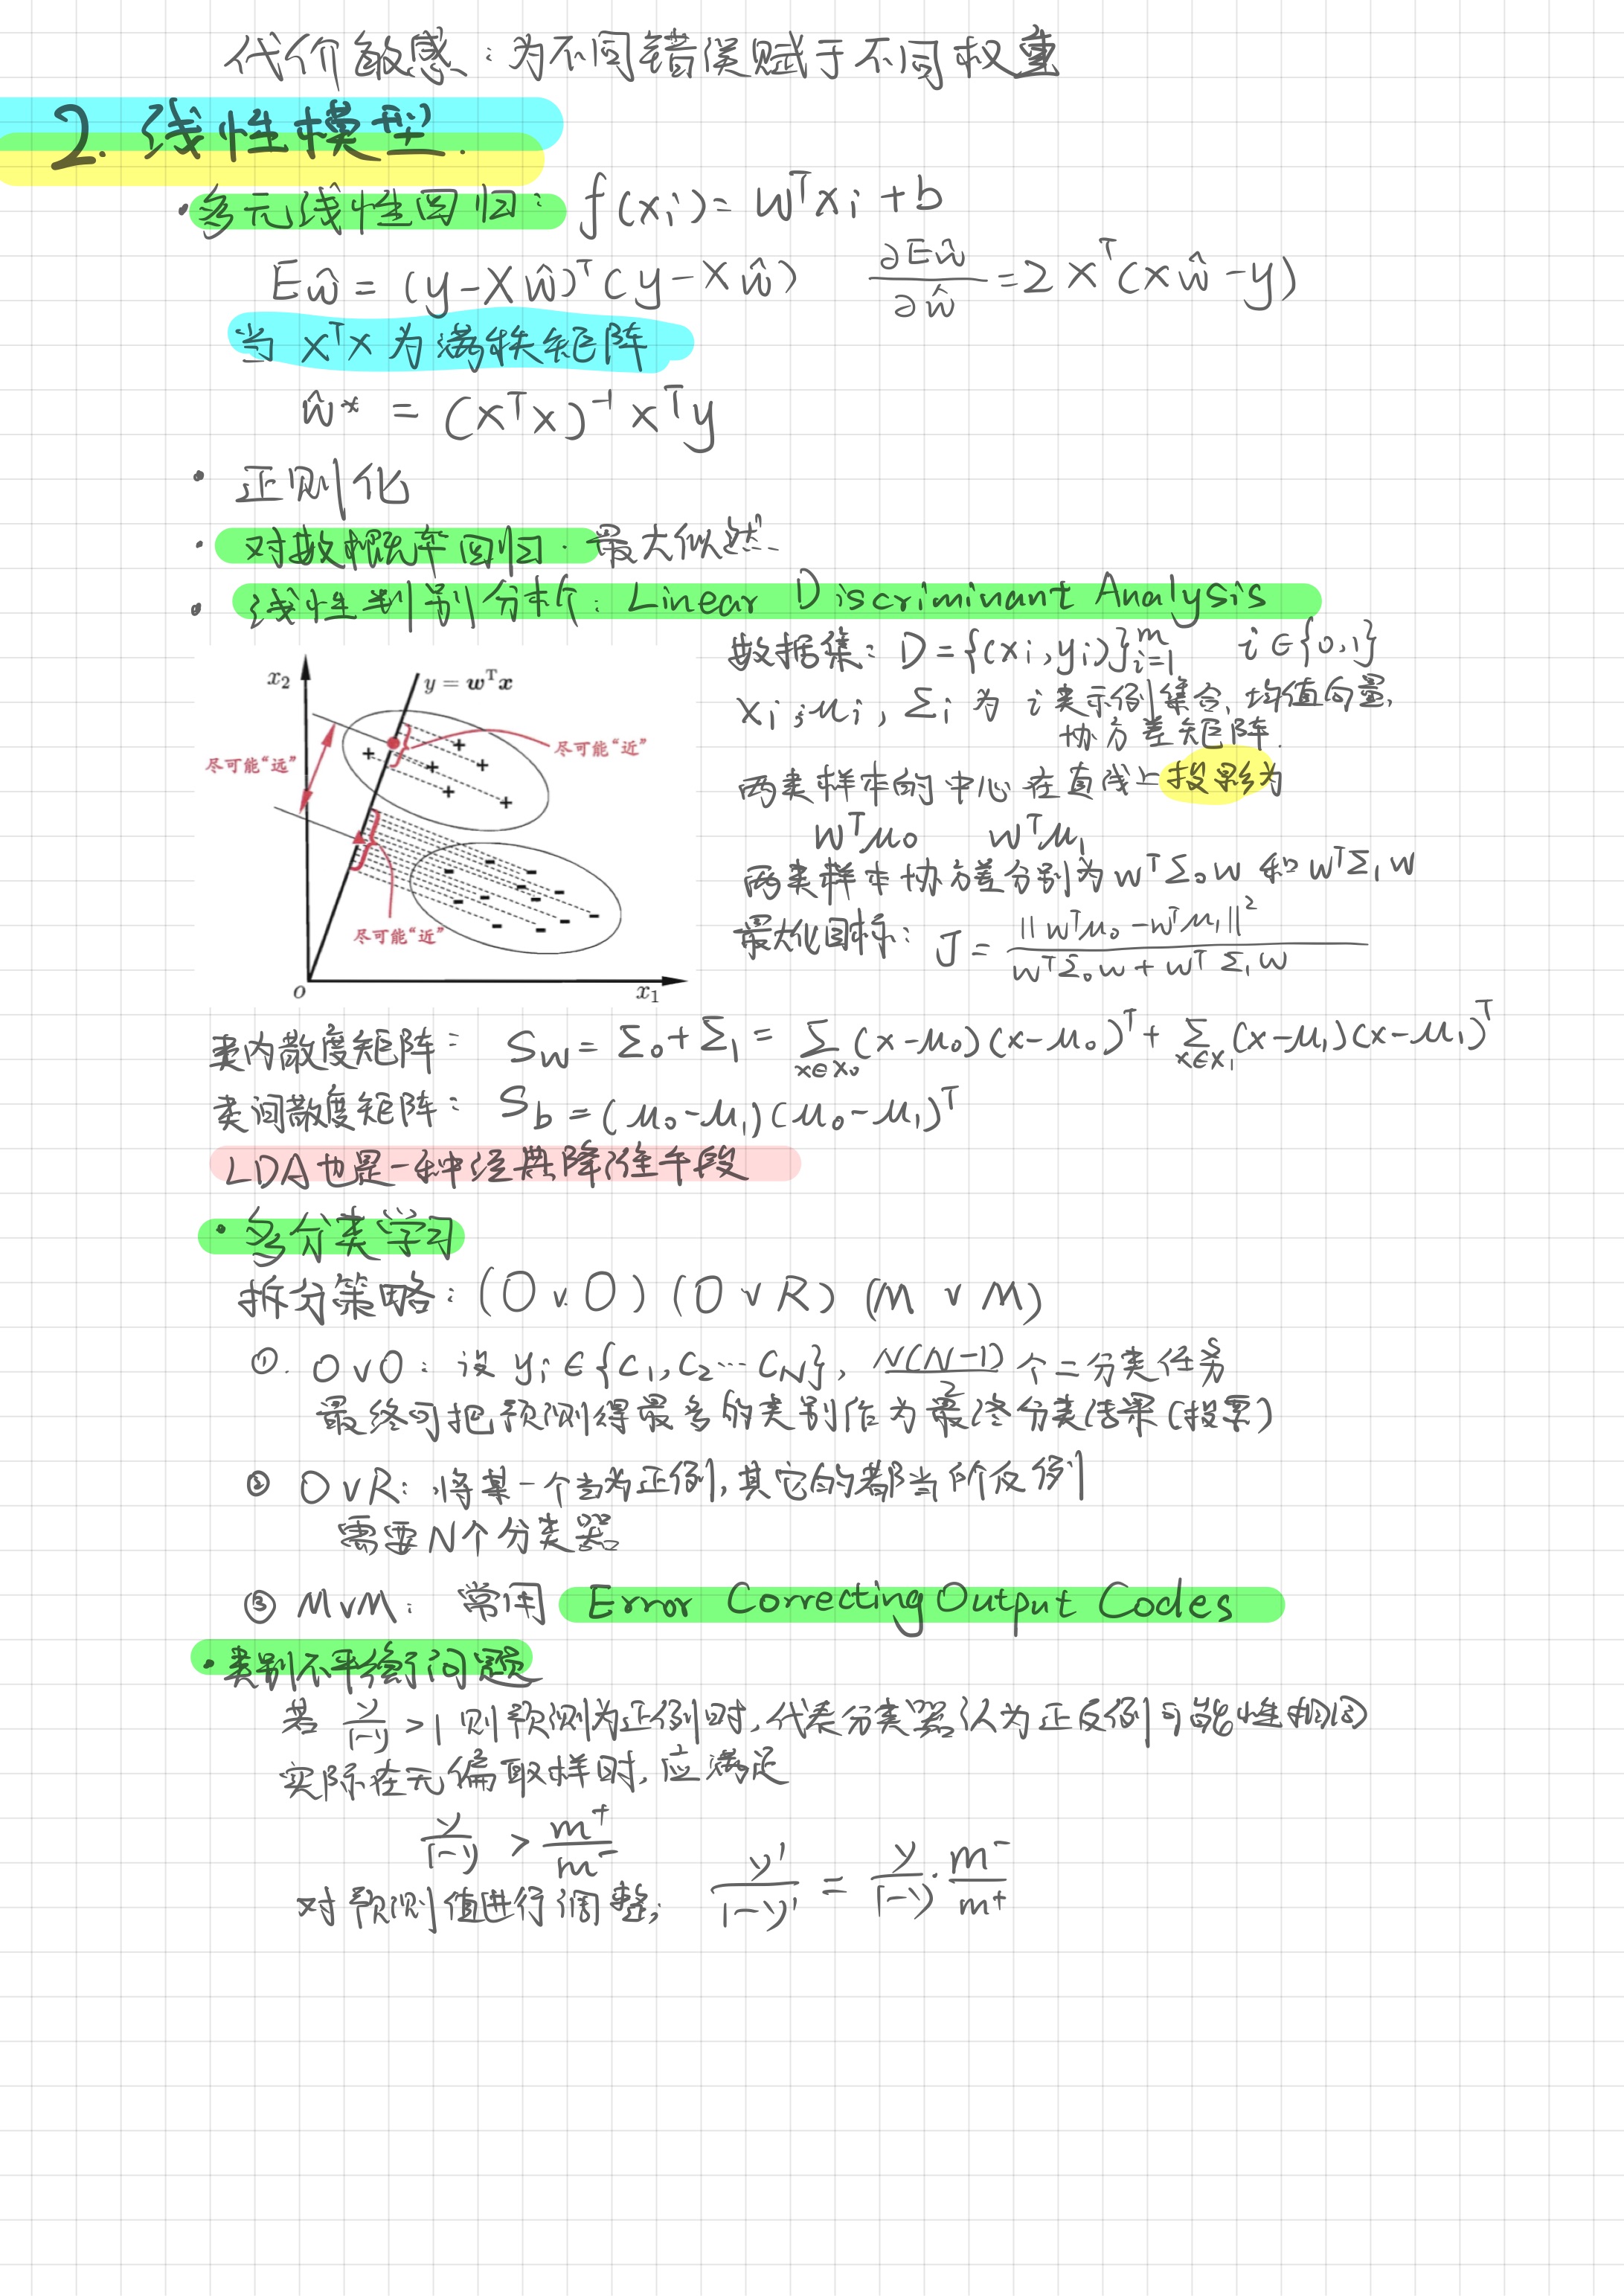 代价敏感:为不同错误赋于不同权重
2. 线性模型.
·多元线性回归: f(xi) = wᵀxi + b
Eŵ = (y-Xŵ)ᵀ(y-Xŵ) ∂Eŵ/∂ŵ = 2Xᵀ(Xŵ-y)
当 XᵀX 为满秩矩阵
ŵ* = (XᵀX)⁻¹Xᵀy
· 正则化
· 对数概率回归·最大似然
· 线性判别分析: Linear Discriminant Analysis
数据集: D = {(xi, yi)}ᵐi=1 i∈{0,1}
Xi, μi, Σi 为 i类示例集合, 均值向量,
协方差矩阵.
两类样本的中心在直线上投影为
wᵀμ₀ wᵀμ₁
两类样本协方差分别为wᵀΣ₀w 和 wᵀΣ₁w
最大化目标: J = ‖wᵀμ₀-wᵀμ₁‖² / (wᵀΣ₀w + wᵀΣ₁w)
x₂
y = wᵀx
尽可能“远”
尽可能“近”
尽可能“近”
o
x₁
类内散度矩阵: Sw = Σ₀+Σ₁ = Σx∈X₀ (x-μ₀)(x-μ₀)ᵀ + Σx∈X₁ (x-μ₁)(x-μ₁)ᵀ
类间散度矩阵: Sb = (μ₀-μ₁)(μ₀-μ₁)ᵀ
LDA也是一种经典降维手段
·多分类学习
拆分策略: (O v O) (O v R) (M v M)
①. OvO: 设 yi∈{C₁,C₂…CN}, N(N-1)/2 个二分类任务
最终可把预测得最多的类别作为最终分类结果(投票)
② OvR: 将某一个当为正例,其它的都当所反例
需要N个分类器
③ MvM: 常用 Error Correcting Output Codes
·类别不平衡问题
若 y/(1-y) > 1 则预测为正例时,代表分类器认为正反例可能性相同
实际在无偏取样时,应满足
y/(1-y) > m⁺/m⁻
对预测值进行调整; y'/(1-y') = y/(1-y) · m⁻/m⁺